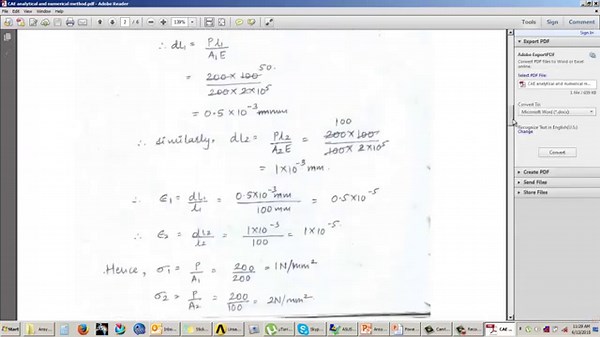 CAE analytical and numerical method.pdf - Adobe Reader
File Edit View Window Help
2 / 6 139% Tools Sign Comment
Sign In
∴ dL₁ = Pl₁ / A₁E
50
= 200 × 100 / 200 × 2 × 10⁵
= 0.5 × 10⁻³ mm
100
∴ similarly, dL₂ = Pl₂ / A₂E = 200 × 100 / 100 × 2 × 10⁵
= 1 × 10⁻³ mm.
∴ ε₁ = dL₁ / l₁ = 0.5 × 10⁻³ mm / 100 mm = 0.5 × 10⁻⁵
∴ ε₂ = dL₂ / l₂ = 1 × 10⁻³ / 100 = 1 × 10⁻⁵
Hence, σ₁ = P / A₁ = 200 / 200 = 1 N/mm²
σ₂ = P / A₂ = 200 / 100 = 2 N/mm²
Export PDF
Adobe ExportPDF
Convert PDF files to Word or Excel online.
Select PDF File:
CAE analytical and numerical m...
1 file /
Convert To:
Microsoft Word (*.docx)
Recognize Text in English(U.S.)
Change
Convert
Create PDF
Send Files
Store Files
Start
CAE ...
11:09 AM